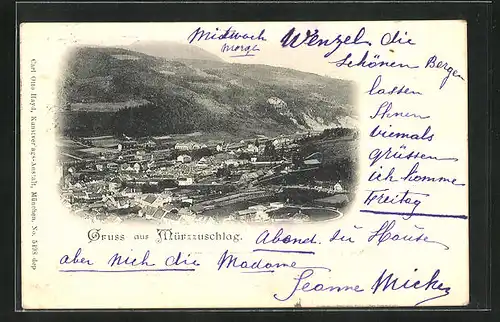 Mittwoch
morgen
Wenzel die
schönen Bergen
lassen
Ihnen
viemals
grüssen
ich komme
Freitag
Gruss aus Mürzzuschlag.
Abend. zu Hause
aber nich die Madame
Jeanne Mickey
Carl Otto Hayd, Kunstverlags-Anstalt, München. No. 5498 dep